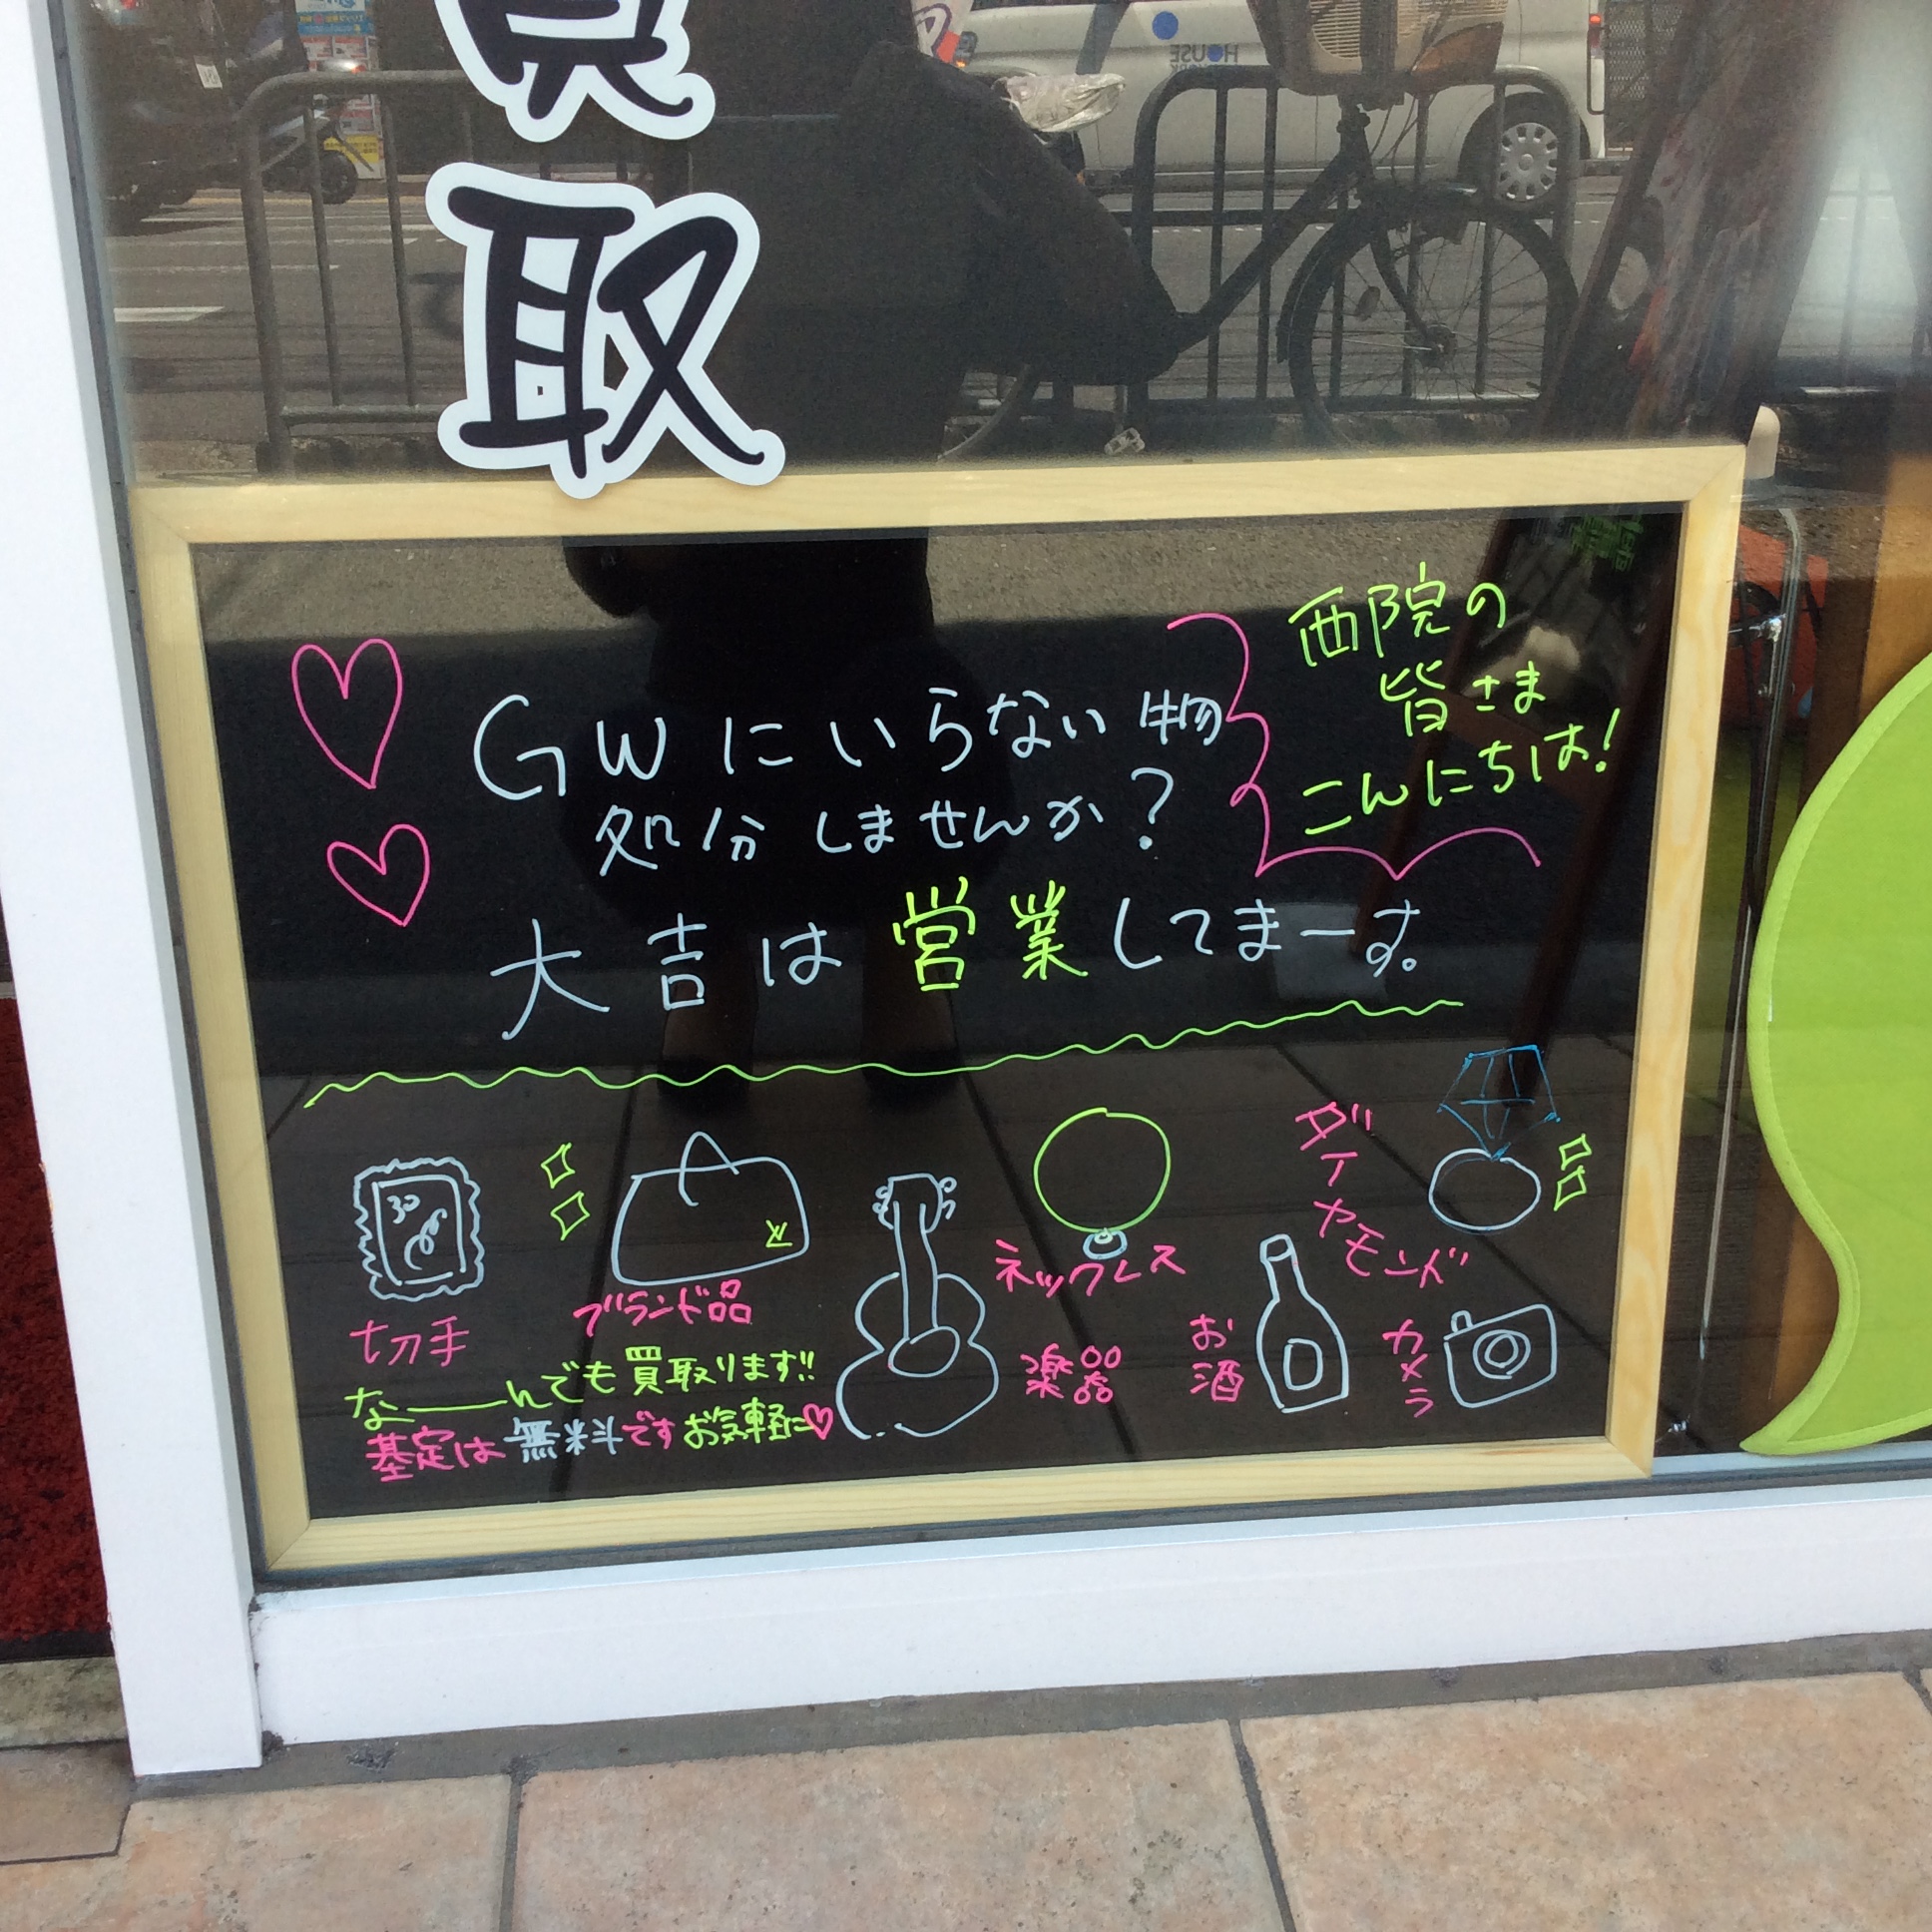 買
取
西院の
皆さま
こんにちは!
GWにいらない物
処分しませんか?
大吉は営業してまーす。
切手
ブランド品
ネックレス
ダイヤモンド
楽器
お酒
カメラ
なーんでも買取ります!!
基定は無料ですお気軽に♡
30
HOUSE